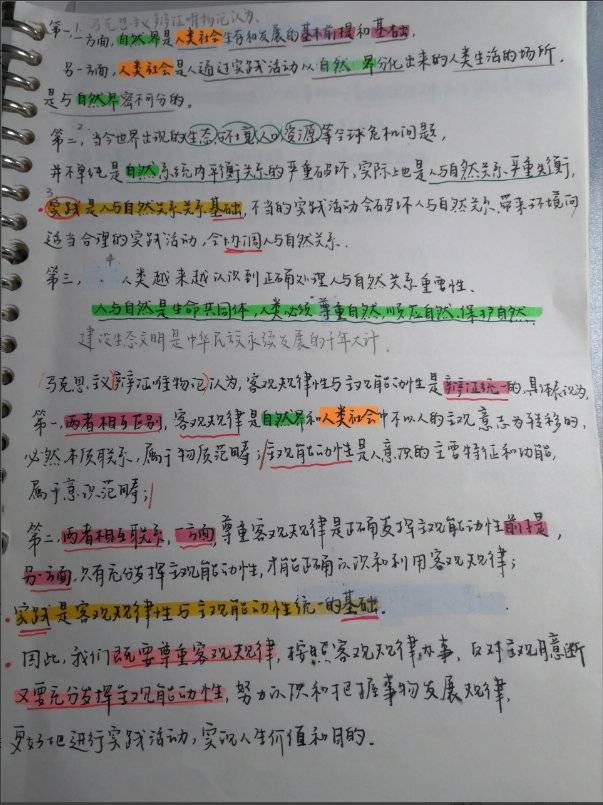 马克思主义辩证唯物论认为、
第一,一方面,自然界是人类社会生存和发展的基本前提和基础,
另一方面,人类社会是人通过实践活动从自然界分化出来的人类生活的场所,
是与自然界密不可分的。
第二,当今世界出现的生态环境人口资源等全球危机问题,
并不单纯是自然系统内平衡关系的严重破坏,实际上也是人与自然关系严重失衡,
实践是人与自然关系关系基础,不当的实践活动会破坏人与自然关系、带来环境问
适当合理的实践活动,会协调人与自然关系.
第三,人类越来越认识到正确处理人与自然关系重要性.
人与自然是生命共同体,人类必须尊重自然顺应自然、保护自然
建设生态文明是中华民族永续发展的千年大计.
马克思主义辩证唯物论认为,客观规律性与主观能动性是辩证统一的,具体表认为,
第一,两者相互区别,客观规律是自然界和人类社会中不以人的主观意志为转移的,
必然本质联系,属于物质范畴;主观能动性是人意识的主要特征和功能,
属于意识范畴;
第二,两者相互联系,一方面,尊重客观规律是正确发挥主观能动性前提,
另一方面,只有充分发挥主观能动性,才能正确认识和利用客观规律;
实践是客观规律性与主观能动性统一的基础.
因此,我们既要尊重客观规律,按照客观规律办事,反对主观臆断
又要充分发挥主观能动性,努力认识和把握事物发展规律,
更好地进行实践活动,实现人生价值和目的.